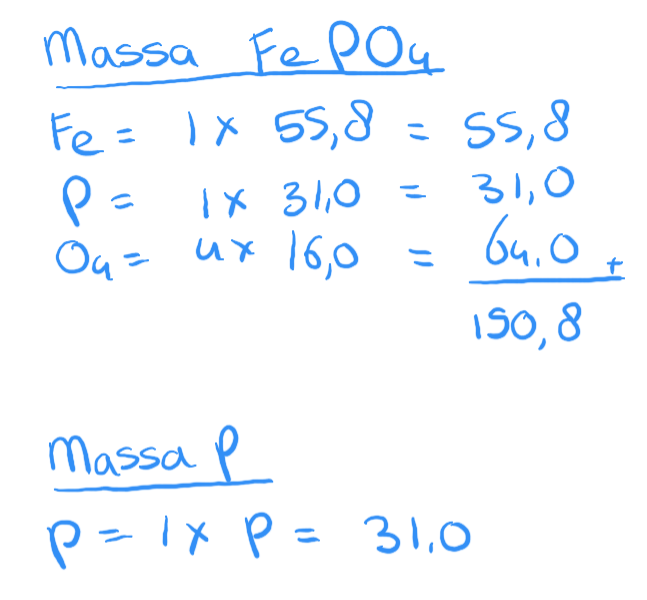 Massa FePO4
Fe = 1 x 55,8 = 55,8
P = 1 x 31,0 = 31,0
O4 = 4 x 16,0 = 64,0 +
150,8
Massa P
P = 1 x P = 31,0